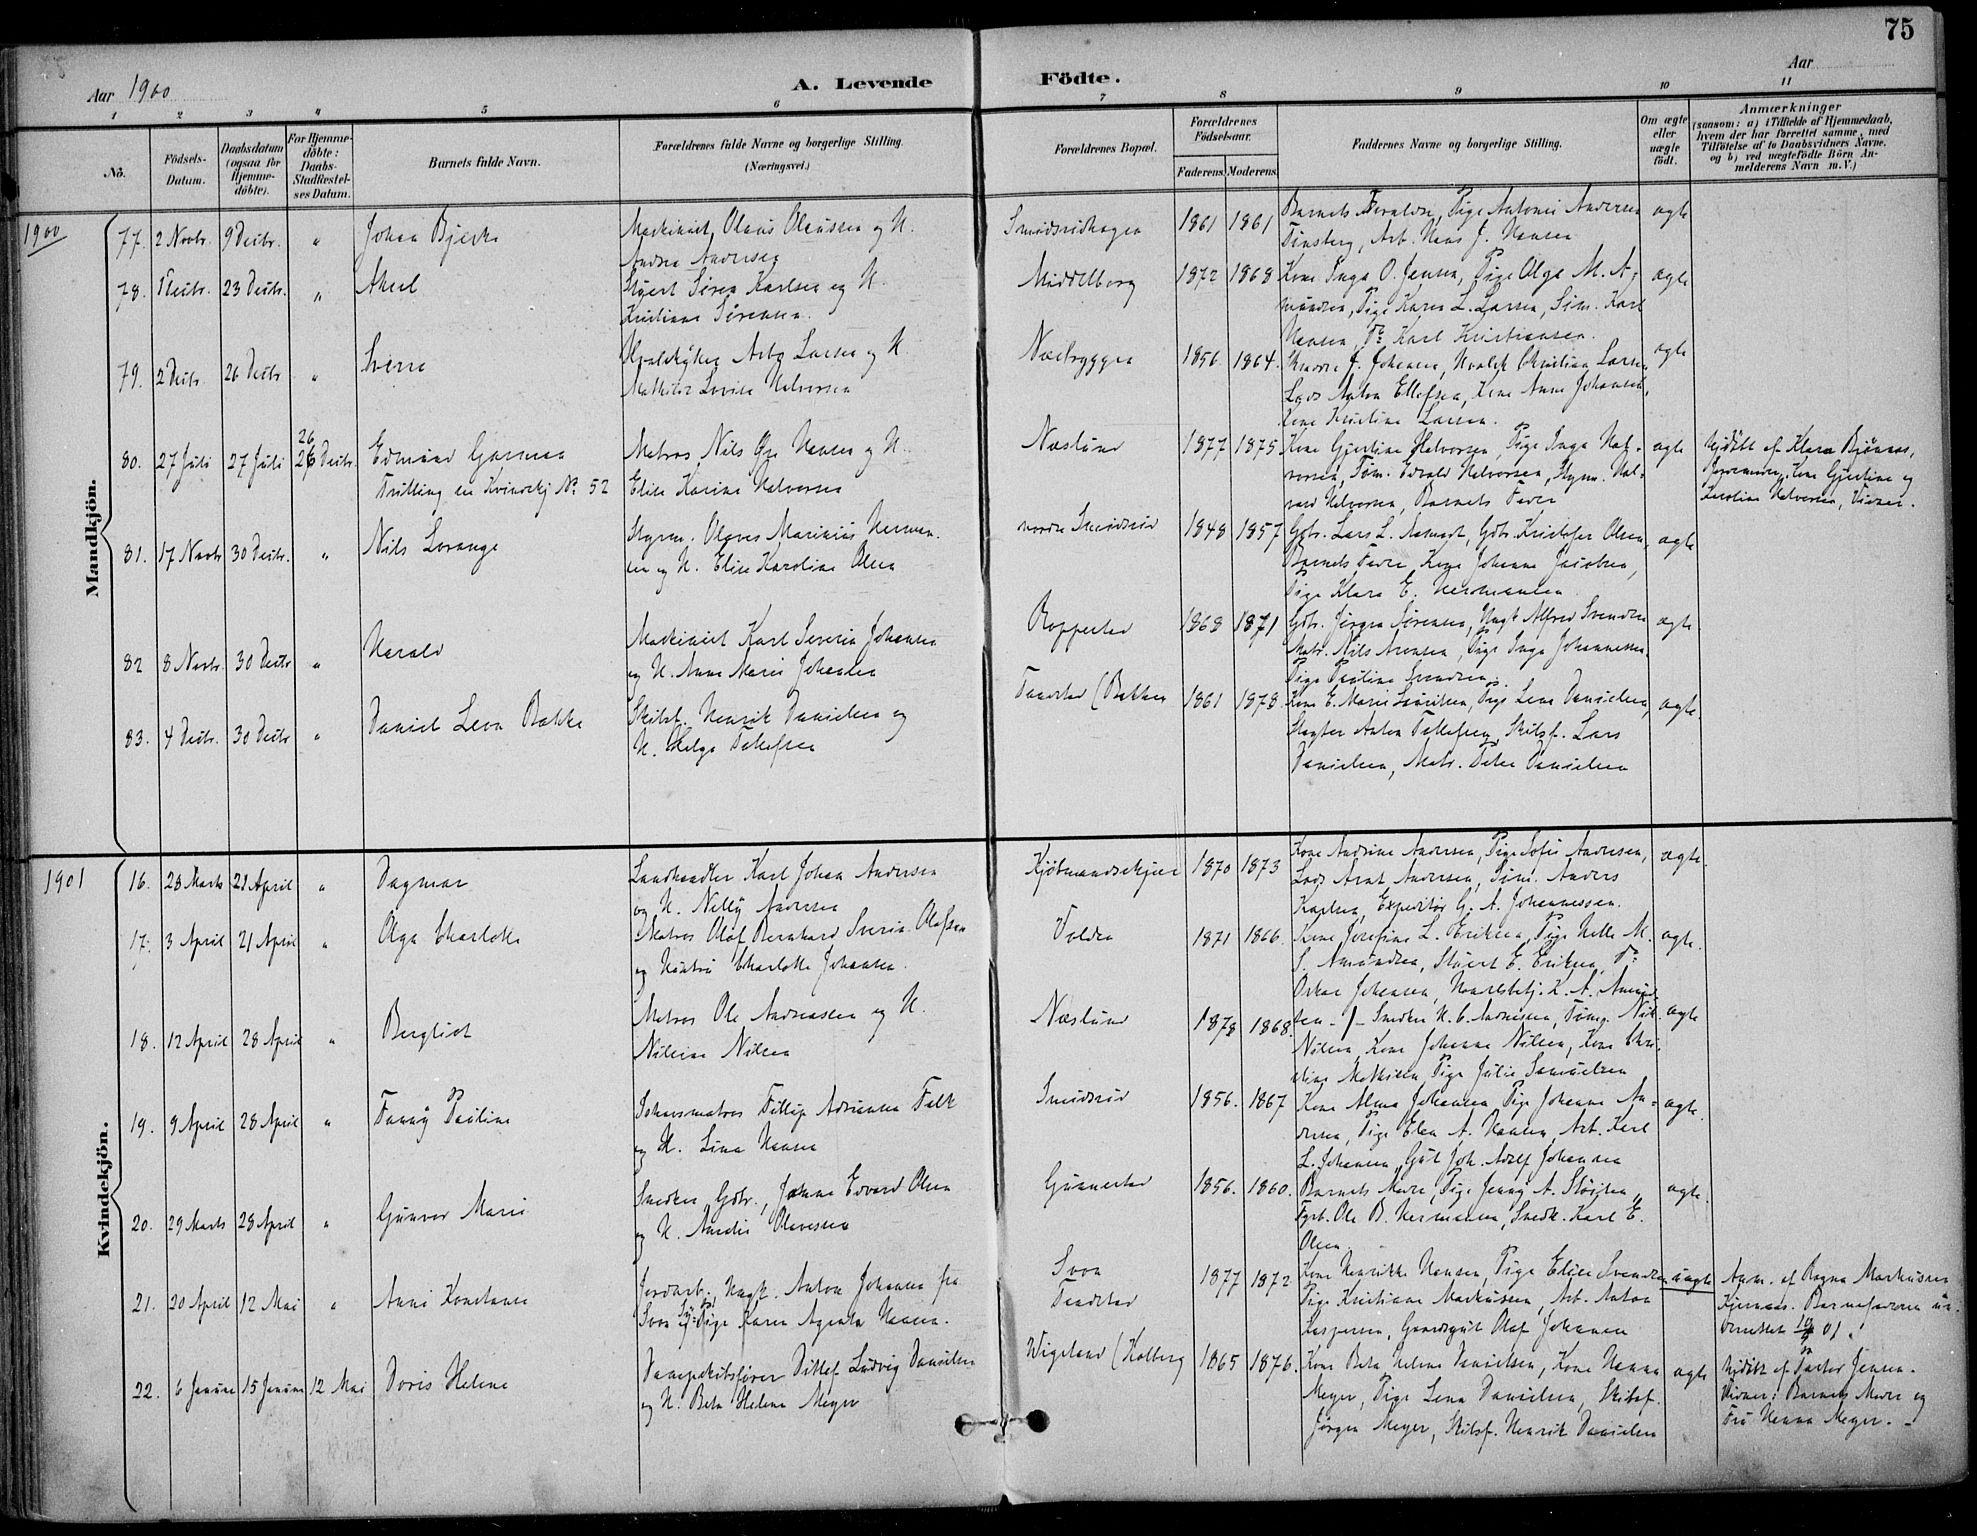 75
Aar 1900
A. Levende Födte.
Aar
1 2 3 4 5 6 7 8 9 10 11
No.
Födsels-Datum.
Daabsdatum (ogsaa for Hjemme-döbte).
For Hjemme-döbte: Daabs-Stadfæstel-ses Datum.
Barnets fulde Navn.
Forældrenes fulde Navne og borgerlige Stilling. (Næringsvei.)
Forældrenes Bopæl.
Forældrenes Födselsaar.
Faderens. Moderens.
Faddernes Navne og borgerlige Stilling.
Om ægte eller uægte födt.
Anmærkninger
(saasom: a) i Tilfælde af Hjemmedaab, hvem der har forrettet samme, med Tilföielse af to Daabsvidners Navne, og b) ved uægtefödte Börn An-melderens Navn m. V.)
Mandkjön.
1900
77. 2 Novbr. 9 Decbr. " Johan Bjerke
Maskinist Olaus Olaussen og H.
Andrea Andersen
1861 1861
Barnets Forældre, Pige Antonie Andersen
Tønsberg, Arb. Hans J. Hansen
ægte
78. 23 Decbr. " Aksel
Styert Søren Karlsen og H.
Kristiane Sørensen.
Middelborg 1872 1868
Kone Inga O. Jensen, Pige Olga M. A-
mundsen, Pige Karen L. Larsen, Tøm. Karl
Hansen, Do Karl Kristiansen.
ægte
79. 2 Decbr 26 Decbr " Sverre
Larsen og H.
Mathilde Lovise Halvorsen
Næsbryggen 1856 1864.
J. Johansen, Kristian Larsen,
Lods Anton Ellefsen, Kone Anne Johansen,
Kone Kristine Larsen.
ægte
80. 27 Juli 27 Juli 26 Decbr. Edmund Gorman
Tvilling en Kvindekj No. 52
Matros Nils Hansen og H.
Elise Karine Halvorsen
Næslund 1877 1875
Kone Gjertine Halvorsen, Pige Inga Hal-
vorsen, Tøm. Edvald Halvorsen, Styrm. Hal-
vard Halvorsen, Barnets Fader
ægte
Hjdøbt af Klara Bjønnes,
Jordemoder, Kone Gjertine og
Karoline Halvorsen, Vidner.
81. 17 Novbr 30 Decbr. " Nils Lorange
Styrm. Olaves Marinius Herman-
sen og H. Elise Karoline Olsen
nordre Smidsrød 1848 1857
Gbr. Lars L. Gdbr. Kristofer Olsen,
Barnets Fader, Kone Johanne Jacobsen,
Pige Klara E. Hermansen
ægte
82 8 Novbr. 30 Decbr " Harald
Maskinist Karl Severin Johansen
og H. Anne Marie Johansen
Roppestad 1868 1871
Gdbr. Jørgen Sørensen, Ungk Alfred Svendsen
Matr. Nils Arensen, Pige Inga Johannessen,
Pige Pauline Svendsen.
ægte.
83. 4 Decbr. 30 Decbr " Daniel Leon Bakke
Skibsf. Henrik Danielsen og
H. Helga Tellefsen
(Bakken 1861 1878
Kone E. Marie Lauritsen, Pige Lena Danielsen,
Slagter Anton Tellefsen, Skibsf. Lars
Danielsen, Matr. Peter Danielsen
ægte.
Kvindekjön.
1901
16. 28 Marts 21 April " Dagmar
Landhandler Karl Johan Andersen
og H. Nelly Andersen
Kjøbmandskjær 1870 1873
Kone Andrine Andersen, Pige Sofie Andersen,
Lods Arnt Andersen, Tøm. Anders
Karlsen, Expeditør G. A. Johannessen.
ægte.
17. 3 April 21 April " Olga Charlotte
Matros Olaf Bernhard Severin Olafsen
og Hustru Charlotte Johansen.
Volden 1871 1866.
Kone Josefine L. Eriksen, Pige Helle M.
S. Amundsen, Stuert E. Eriksen, Do
Oskar Johansen, K. A. Amund-
sen
ægte.
18. 12 April 28 April " Bergliot
Matros Ole Andreassen og H.
Nilsine Nilsen
Næslund 1878 1868.
Snedker H. C. Andresen, Tømr. Nils
Nilsen, Kone Johanne Nilsen, Kone Chri-
stine Mathisen, Pige Julie Samuelsen
ægte
19. 9 April 28 April " Fanny Pauline
Fillip Adriansen Falk
og H. Lina Hansen
Smidsrød 1856. 1867
Kone Alma Johansen Pige Johanne An-
dersen, Pige Elen A. Hansen, Arb. Karl
L. Johansen, Gut Joh. Adolf Johansen
ægte.
20. 29 Marts 28 April " Gunvor Marie
Snedker, Gdbr., Johan Edvard Olsen
og H. Amalie Olavesen
Gunnestad 1856. 1860.
Barnets Moder, Pige Jenny A. Støiten,
Fyrb. Ole B. Hermansen, Snedk. Karl E.
Olsen.
ægte.
21. 30 April 12 Mai " Anni Konstanse
Jordarb., Ungk. Anton Johansen fra
Svon og Pige Karen Agathe Hansen.
Svon 1877 1872
Kone Henrikke Hansen, Pige Elise Svendsen
Pige Kristiane Markussen, Arb. Anton
Kaspersen, Gaardsgut Olaf Johansen
uægte
Anm. af Ragna Markussen
Kjernaas. Barnefaderen un-
derrettet 01.
22. 6 Januar 15 Januar 12 Mai Doris Helene
Dampskibsfører Ditlef Ludvig Danielsen
og H. Beta Helene Meyer
Wigeland (Holberg 1865 1876.
Kone Beta Helene Danielsen, Kone Hanna
Meyer, Pige Lena Danielsen, Skibsf.
Jørgen Meyer, Skibsf. Henrik Danielsen
ægte
Hjdøbt af Pastor Jensen.
Vidner: Barnets Moder og
Fru Hanna Meyer. -